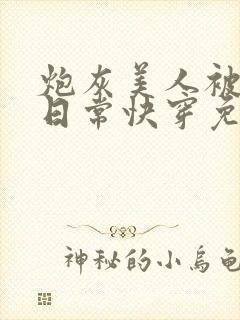 炮灰美人被
日常快穿免
神秘的小乌龟